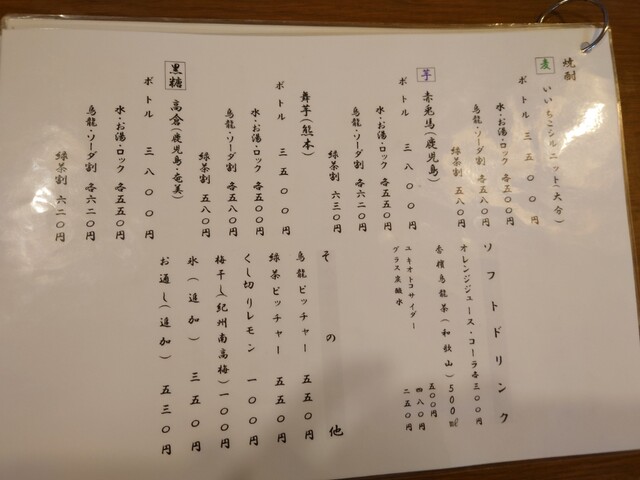 焼酎
麦
いいちこシルエット(大分)
ボトル 三五〇〇円
水・お湯・ロック 各五〇〇円
烏龍・ソーダ割 各五五〇円
緑茶割 五八〇円
芋
赤兎馬(鹿児島)
ボトル 三八〇〇円
水・お湯・ロック 各五五〇円
烏龍・ソーダ割 各六二〇円
緑茶割 六三〇円
舞芋(熊本)
ボトル 三五〇〇円
水・お湯・ロック 各五〇〇円
烏龍・ソーダ割 各五八〇円
緑茶割 五八〇円
黒糖
高倉(鹿児島・奄美)
ボトル 三八〇〇円
水・お湯・ロック 各五五〇円
烏龍・ソーダ割 各六二〇円
緑茶割 六二〇円
ソフトドリンク
オレンジジュース・コーラ各三〇〇円
壱穣烏龍茶(和歌山)500㎖ 五〇〇円
ユキオトコサイダー 四八〇円
グラス炭酸水 二五〇円
その他
烏龍ピッチャー 五五〇円
緑茶ピッチャー 五五〇円
くし切りレモン 一〇〇円
梅干し(紀州南高梅)一〇〇円
氷(追加) 三五〇円
お通し(追加) 五三〇円